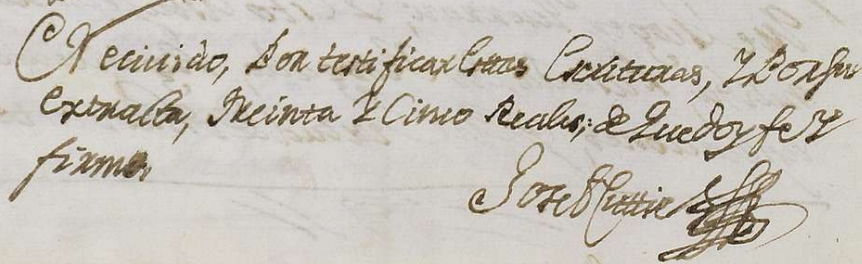 Reciuido, Por testificar estas Escrituras, Y Por su
extracta, Treinta Y Cinco Reales; de Que doy fe Y
firmo,
Joseph